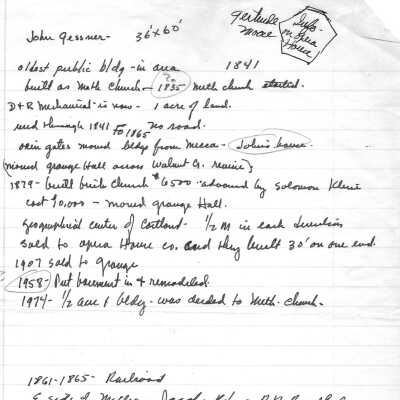 John Gessner - 36'x60'
Gertrude Moore
Info on Opera House
oldest public bldg - in area 1841
built as Meth Church - To 1835 Meth church started.
D&R Mechanical - is now - 1 acre of land.
used through 1841 To 1865 no road.
gates moved bldg from Mecca - John's house.
(moved grange Hall across Walnut Cr.
1879 - built brick church $6500 - advanced by Solomon Kline
cost 9,000 - moved grange Hall.
geographical center of Cortland - 1/2 M in each direction
sold to opera House co. and they built 30' on one end.
1907 sold to Grange
1958 - Put basement in & remodeled.
1974 - 1/2 acre & bldg. was deeded to Meth. church.
1861-1865 - Railroad
E side of